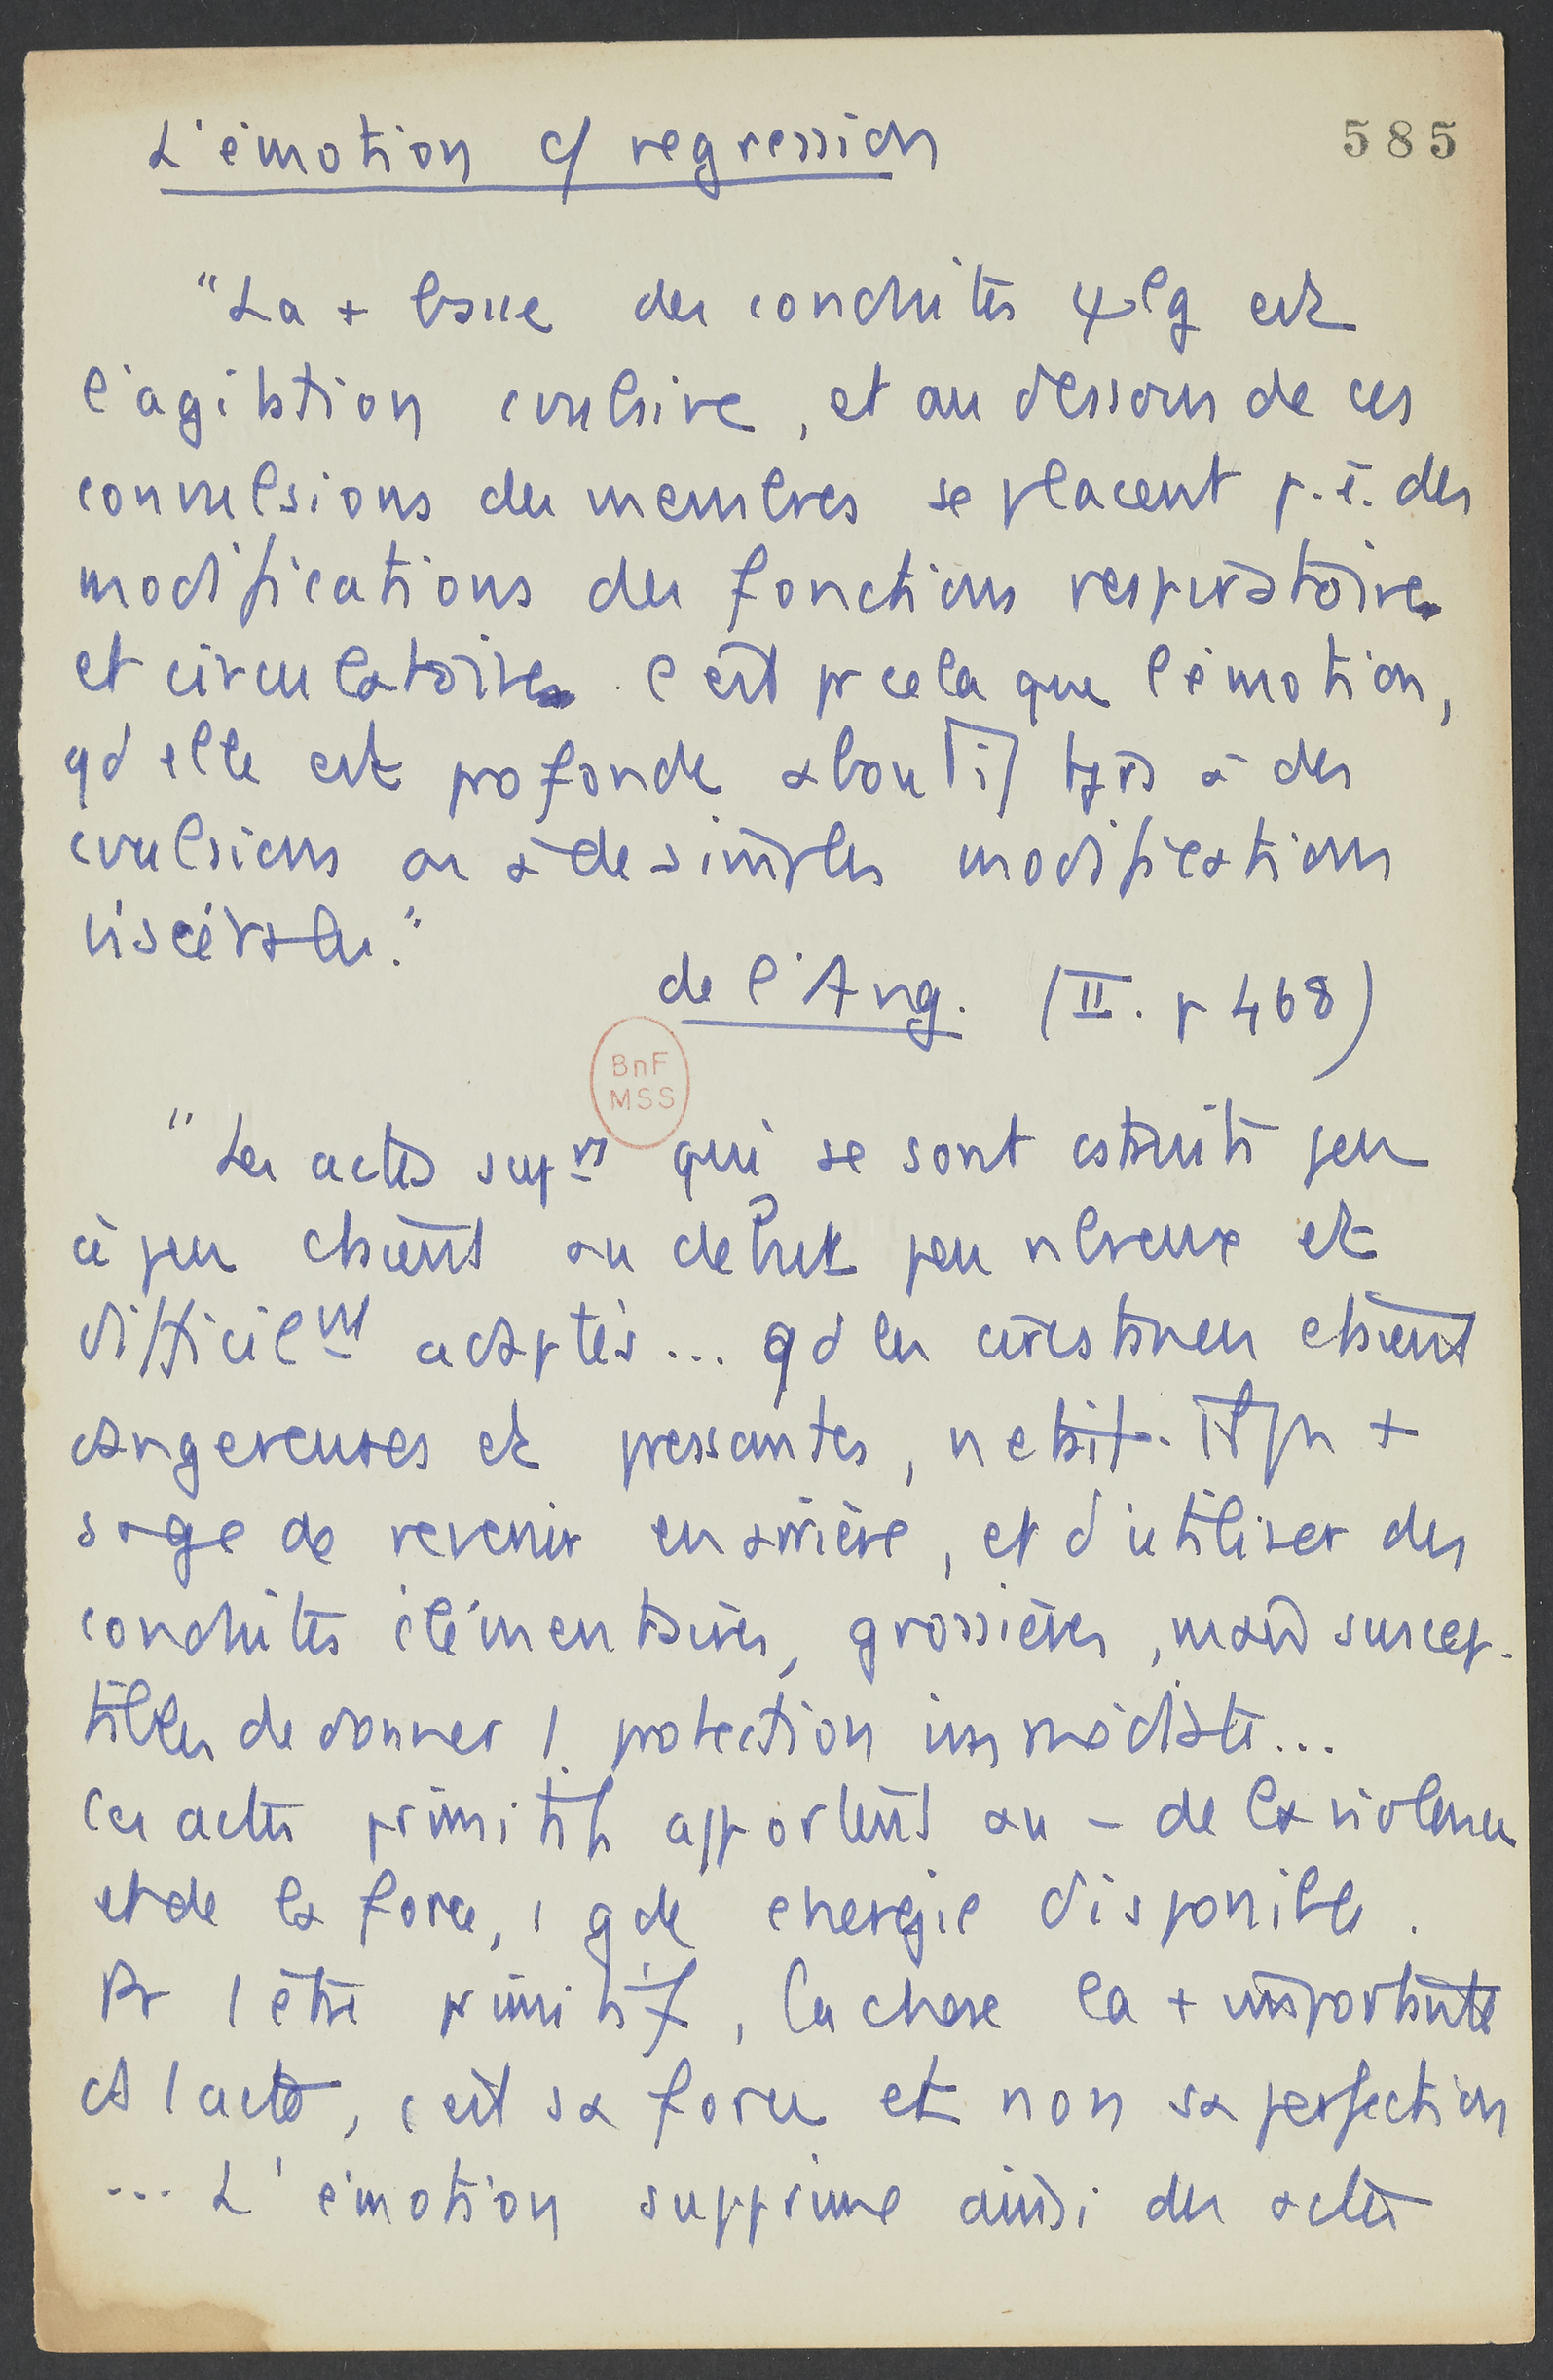 L'émotion c/ regression
585
"La + basse des conduites ψlg est
l'agitation cvulsive, et au dessous de ces
convulsions des membres se placent p.ê. des
modifications des fonctions respiratoires
et circulatoires. C'est pr cela que l'émotion,
qd elle est profonde about[it] tjrs à des
cvulsions ou à de simples modifications
viscérales."
de l'Ang. (II. p 468)
BnF
MSS
"Les actes suprs qui se sont cstruits peu
à peu étaient au debut peu nbreux et
difficilemt adaptés... qd les circstances étaient
dangereuses et pressantes, n'etait-il pas +
sage de revenir en arrière, et d'utiliser des
conduites élémentaires, grossières, mais suscep-
tibles de donner 1 protection immédiate...
Ces actes primitifs apportent au - de la violence
et de la force, 1 gde energie disponible.
Pr l'être primitif, la chose la + importante
ds l'acte, c'est sa force et non sa perfection
... L'émotion supprime ainsi des actes